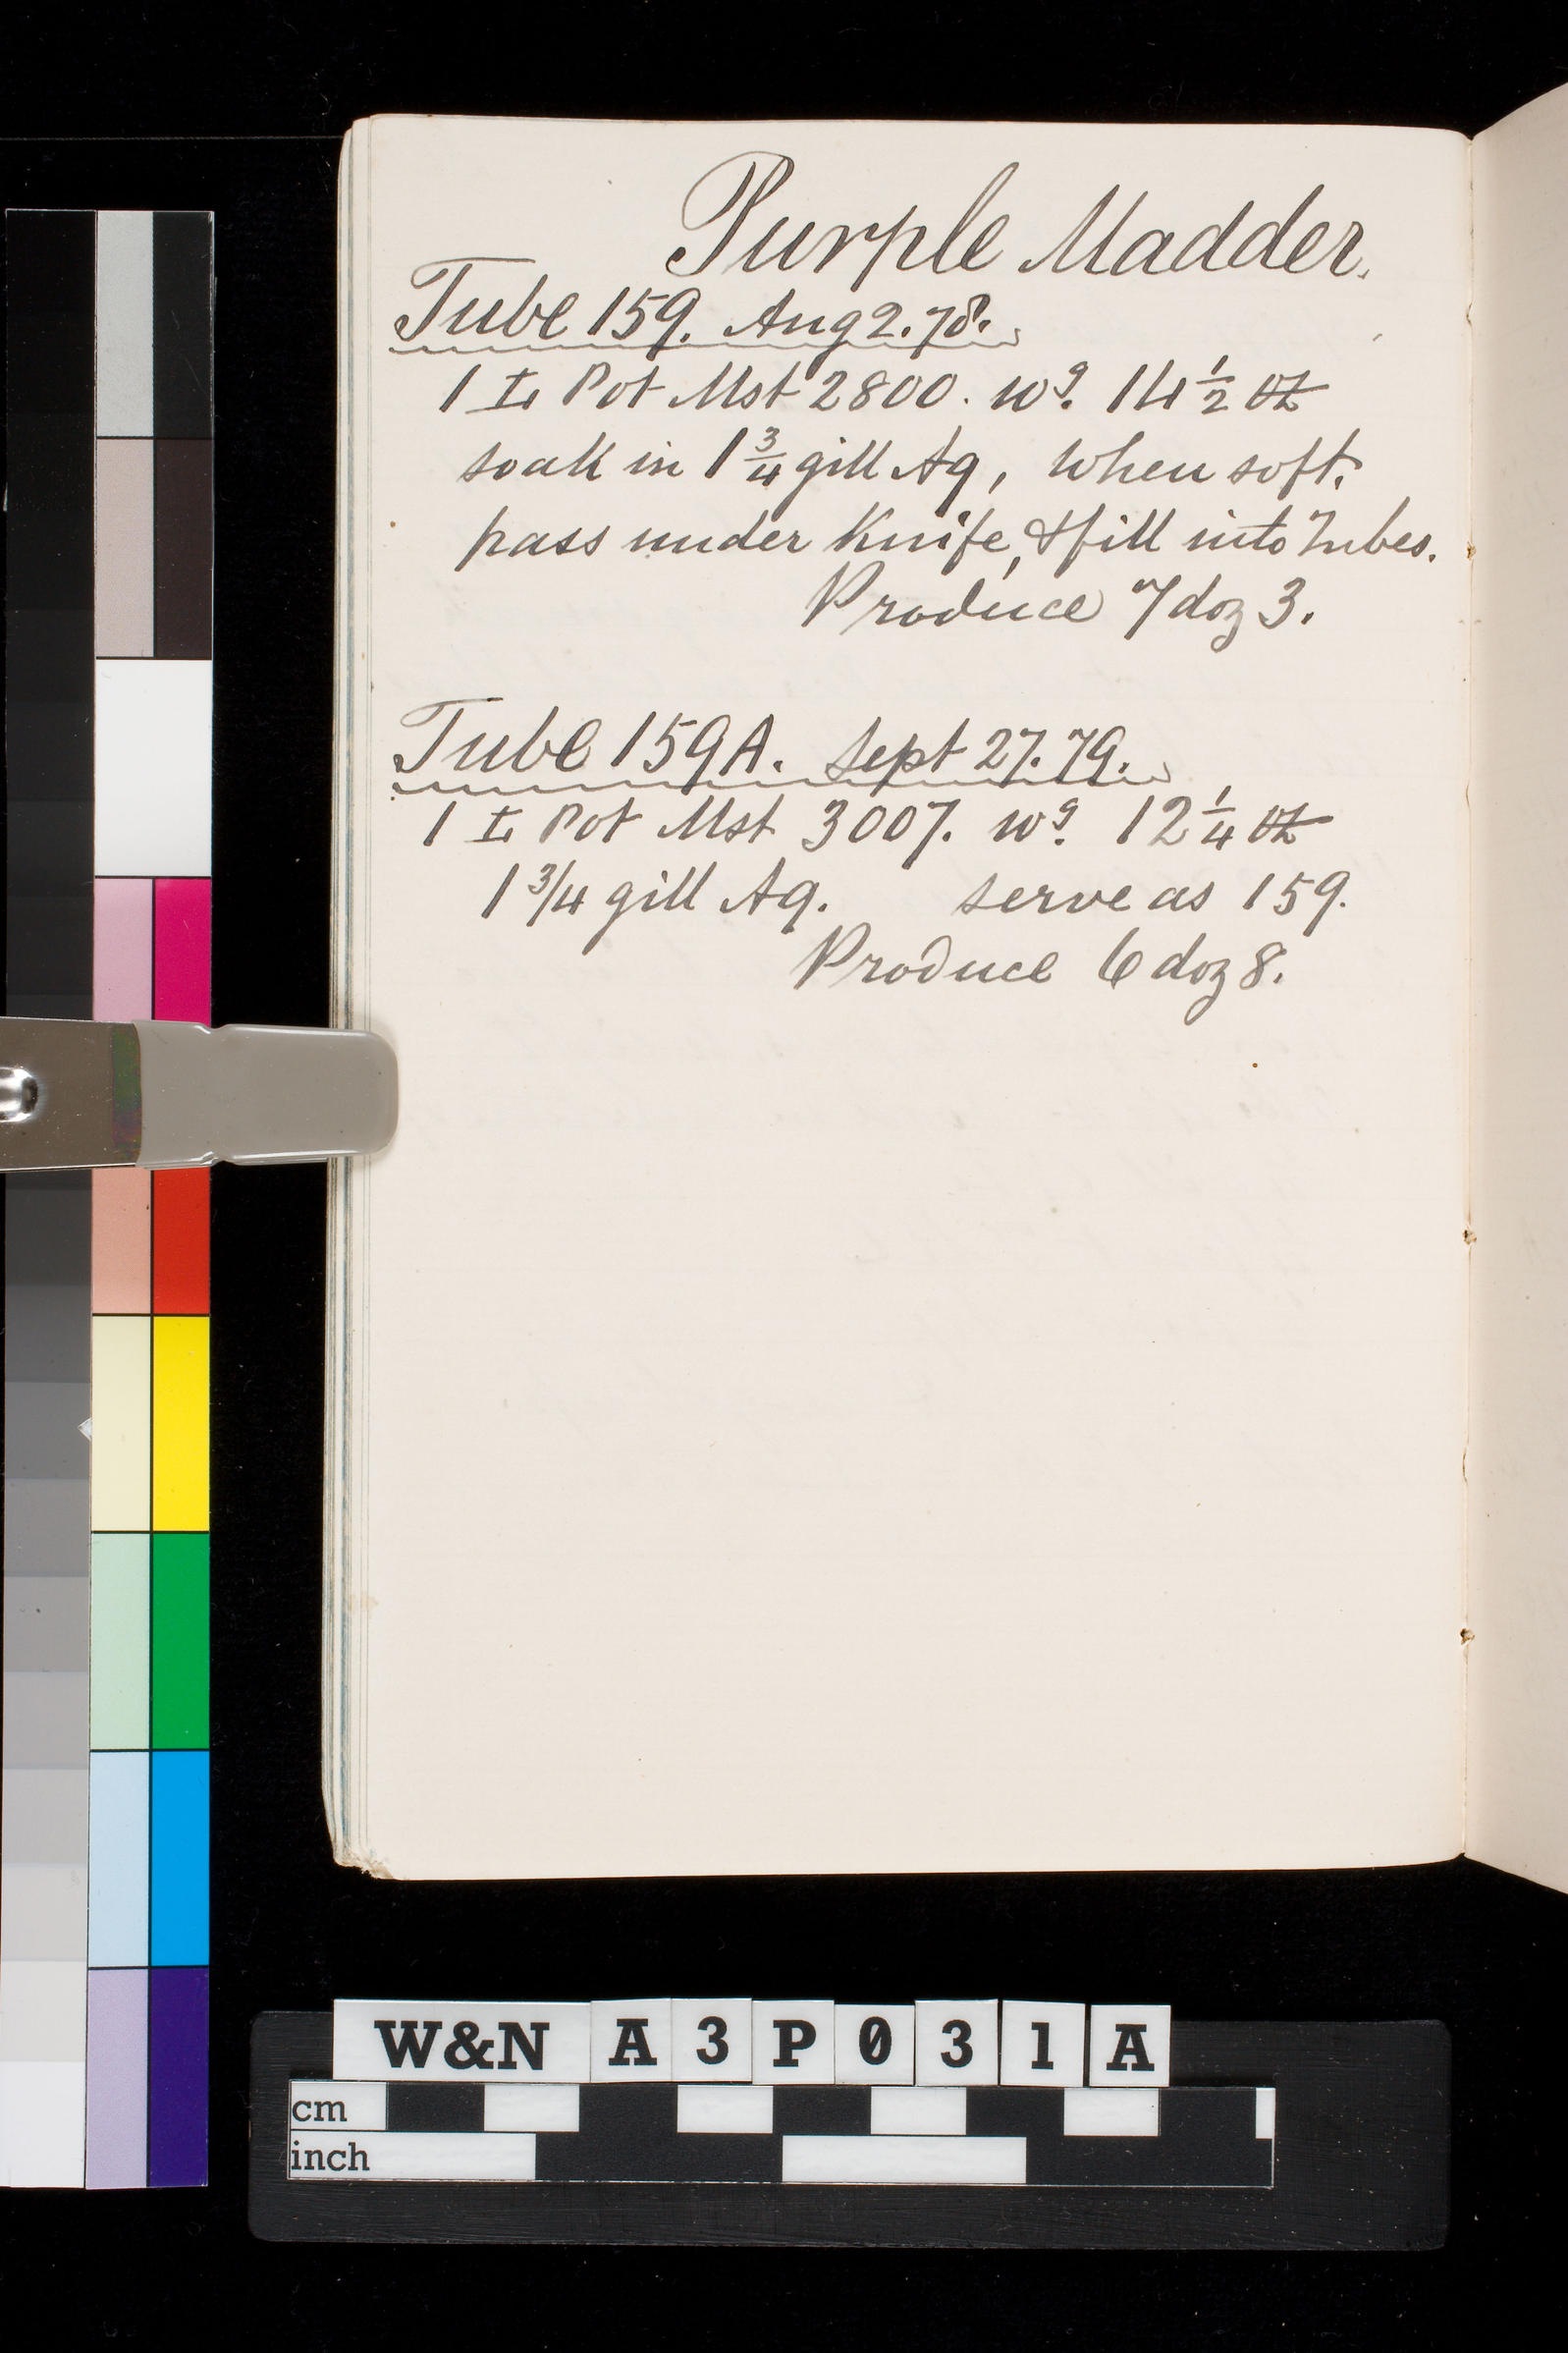 Purple Madder.
Tube 159. Aug 2. 78.
1 Pot Mst 2800. wg. 14 1/2 oz
soak in 1 3/4 gill Aq, when soft,
pass under Knife, & fill into Tubes.
Produce 7 doz 3.
Tube 159A. Sept 27. 79.
1 Pot Mst 3007. wg. 12 1/4 oz
1 3/4 gill Aq. serve as 159.
Produce 6 doz 8.
W&N A3P031A
cm
inch